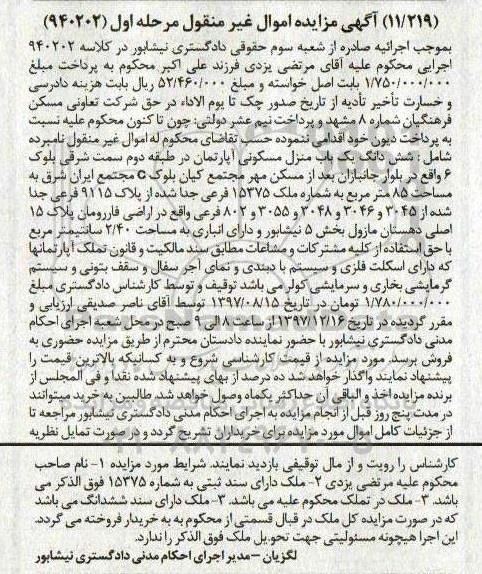 (۱۱/۲۱۹) آگهی مزایده اموال غیر منقول مرحله اول (۹۴۰۲۰۲)
بموجب اجرائیه صادره از شعبه سوم حقوقی دادگستری نیشابور در کلاسه ۹۴۰۲۰۲
اجرایی محکوم علیه آقای مرتضی یزدی فرزند علی اکبر محکوم به پرداخت مبلغ
۱/۷۵۰/۰۰۰/۰۰۰ بابت اصل خواسته و مبلغ ۵۲/۴۶۰/۰۰۰ ریال بابت هزینه دادرسی
و خسارت تأخیر تأدیه از تاریخ صدور چک تا یوم الاداء در حق شرکت تعاونی مسکن
فرهنگیان شماره ۸ مشهد و پرداخت نیم عشر دولتی: چون تا کنون محکوم علیه نسبت
به پرداخت دیون خود اقدامی ننموده حسب تقاضای محکوم له اموال غیر منقول نامبرده
شامل : شش دانگ یک باب منزل مسکونی آپارتمان در طبقه دوم سمت شرقی بلوک
۶ واقع در بلوار جانبازان بعد از مسکن مهر مجتمع کیان بلوک C مجتمع ایران شرق به
مساحت ۸۵ متر مربع به شماره ملک ۱۵۳۷۵ فرعی جدا شده از پلاک ۹۱۱۵ فرعی جدا
شده از ۳۰۴۵ و ۳۰۴۶ و ۳۰۴۸ و ۳۰۵۵ و ۸۰۲ فرعی واقع در اراضی فاررومان پلاک ۱۵
اصلی دهستان مازول بخش ۵ نیشابور و دارای انباری به مساحت ۲/۴۰ سانتیمتر مربع
با حق استفاده از کلیه مشترکات و مشاعات مطابق سند مالکیت و قانون تملک آپارتمانها
که دارای اسکلت فلزی و سیستم با دبندی و نمای آجر سفال و سقف بتونی و سیستم
گرمایشی بخاری و سرمایشی کولر می باشد توقیف و توسط کارشناس دادگستری مبلغ
۱/۷۸۰/۰۰۰/۰۰۰ تومان در تاریخ ۱۳۹۷/۰۸/۱۵ توسط آقای ناصر صدیقی ارزیابی و
مقرر گردیده در تاریخ ۱۳۹۷/۱۲/۱۶ از ساعت ۸ الی ۹ صبح در محل شعبه اجرای احکام
مدنی دادگستری نیشابور با حضور نماینده دادستان محترم از طریق مزایده حضوری به
فروش برسد. مورد مزایده از قیمت کارشناسی شروع و به کسانیکه بالاترین قیمت را
پیشنهاد نمایند واگذار خواهد شد ده درصد از بهای پیشنهاد شده نقدا و فی المجلس از
برنده مزایده اخذ و الباقی آن حداکثر یکماه وصول خواهد شد. طالبین به خرید میتوانند
در مدت پنج روز قبل از انجام مزایده به اجرای احکام مدنی دادگستری نیشابور مراجعه تا
از جزئیات کامل اموال مورد مزایده برای خریداران تشریح گردد و در صورت تمایل نظریه
کارشناس را رویت و از مال توقیفی بازدید نمایند. شرایط مورد مزایده ۱- نام صاحب
محکوم علیه مرتضی یزدی ۲- ملک دارای سند ثبتی به شماره ۱۵۳۷۵ فوق الذکر می
باشد. ۳- ملک در تملک محکوم علیه می باشد. ۳- ملک دارای سند ششدانگ می باشد
که در صورت مزایده کل ملک در قبال قسمتی از محکوم به به خریدار فروخته می گردد.
این اجرا هیچونه مسئولیتی جهت تحویل ملک فوق الذکر را ندارد.
لگزیان – مدیر اجرای احکام مدنی دادگستری نیشابور